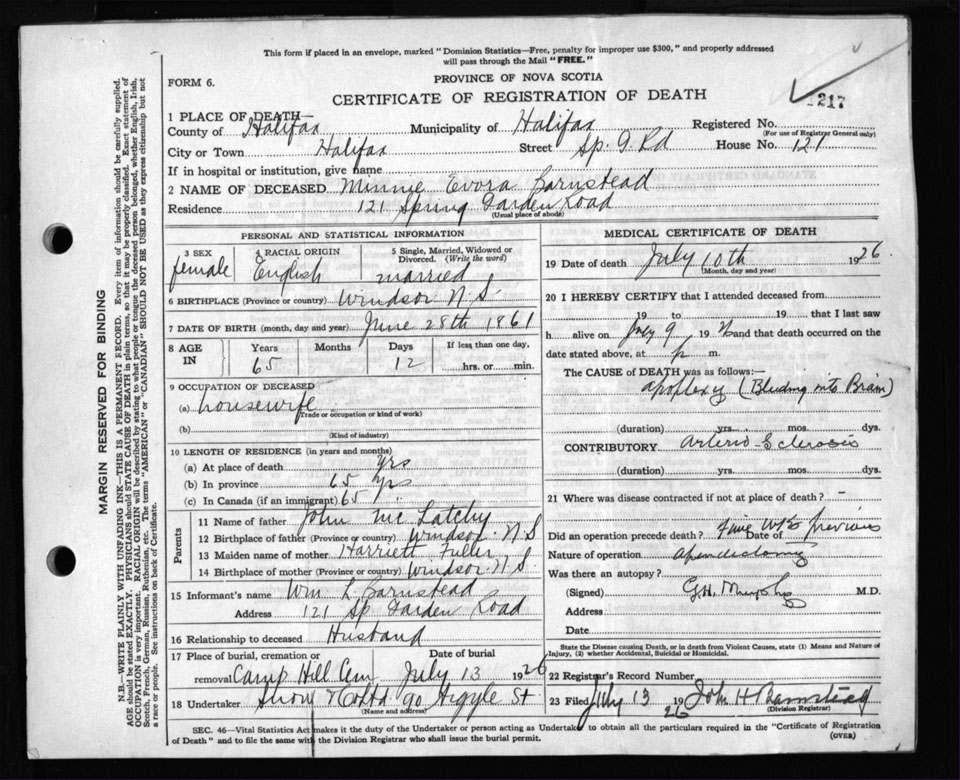 This form if placed in an envelope, marked "Dominion Statistics—Free, penalty for improper use $300," and properly addressed
will pass through the Mail "FREE."
PROVINCE OF NOVA SCOTIA
FORM 6.
CERTIFICATE OF REGISTRATION OF DEATH
1217
1 PLACE OF DEATH—
County of Halifax Municipality of Halifax Registered No.
(For use of Registrar General only)
City or Town Halifax Street Sp. G Rd House No. 121
If in hospital or institution, give name
2 NAME OF DECEASED Minnie Evora Barnstead
Residence 121 Spring Garden Road
(Usual place of abode)
PERSONAL AND STATISTICAL INFORMATION
3 SEX female
4 RACIAL ORIGIN English
5 Single, Married, Widowed or Divorced. (Write the word) married
6 BIRTHPLACE (Province or country) Windsor N S
7 DATE OF BIRTH (month, day and year) June 28th 1861
8 AGE IN Years 65 Months Days 12 If less than one day, hrs. or min.
9 OCCUPATION OF DECEASED
(a) housewife
(Trade or occupation or kind of work)
(b)
(Kind of industry)
10 LENGTH OF RESIDENCE (in years and months)
(a) At place of death yrs
(b) In province 65 yrs
(c) In Canada (if an immigrant) 65
Parents
11 Name of father John Mc Latchy
12 Birthplace of father (Province or country) Windsor N S
13 Maiden name of mother Harriett Fuller
14 Birthplace of mother (Province or country) Windsor N. S.
15 Informant's name Wm L Barnstead
Address 121 Sp Garden Road
16 Relationship to deceased Husband
17 Place of burial, cremation or removal Camp Hill Cem Date of burial July 13 1926
18 Undertaker Snow & Co Ltd 90 Argyle St
(Name and address)
MEDICAL CERTIFICATE OF DEATH
19 Date of death July 10th 1926
(Month, day and year)
20 I HEREBY CERTIFY that I attended deceased from
19 to 19 that I last saw
h alive on July 9 19 and that death occurred on the
date stated above, at p m.
The CAUSE of DEATH was as follows:—
apoplexy (Bleeding into Brain)
(duration) yrs. mos. dys.
CONTRIBUTORY Arterio Sclerosis
(duration) yrs. mos. dys.
21 Where was disease contracted if not at place of death? —
Did an operation precede death? Date of previous
Nature of operation
Was there an autopsy?
(Signed) G.H. Murphy M.D.
Address
Date
State the Disease causing Death, or in death from Violent Causes, state (1) Means and Nature of
Injury, (2) whether Accidental, Suicidal or Homicidal.
22 Registrar's Record Number
23 Filed July 13 1926 John H Barnstead
(Division Registrar)
SEC. 46—Vital Statistics Act makes it the duty of the Undertaker or person acting as Undertaker to obtain all the particulars required in the "Certificate of Registration
of Death" and to file the same with the Division Registrar who shall issue the burial permit.
(OVER)
MARGIN RESERVED FOR BINDING
N.B.—WRITE PLAINLY WITH UNFADING INK—THIS IS A PERMANENT RECORD. Every item of information should be carefully supplied.
AGE should be stated EXACTLY. PHYSICIANS should STATE CAUSE OF DEATH in plain terms, so that it may be properly classified. Exact statement of
OCCUPATION is very important. RACIAL ORIGIN will be described by stating to what people or tongue the deceased person belonged, whether English, Irish,
Scotch, French, German, Russian, Ruthenian, etc. The terms "AMERICAN" or "CANADIAN" SHOULD NOT BE USED as they express citizenship but not
a race or people. See instructions on back of Certificate.